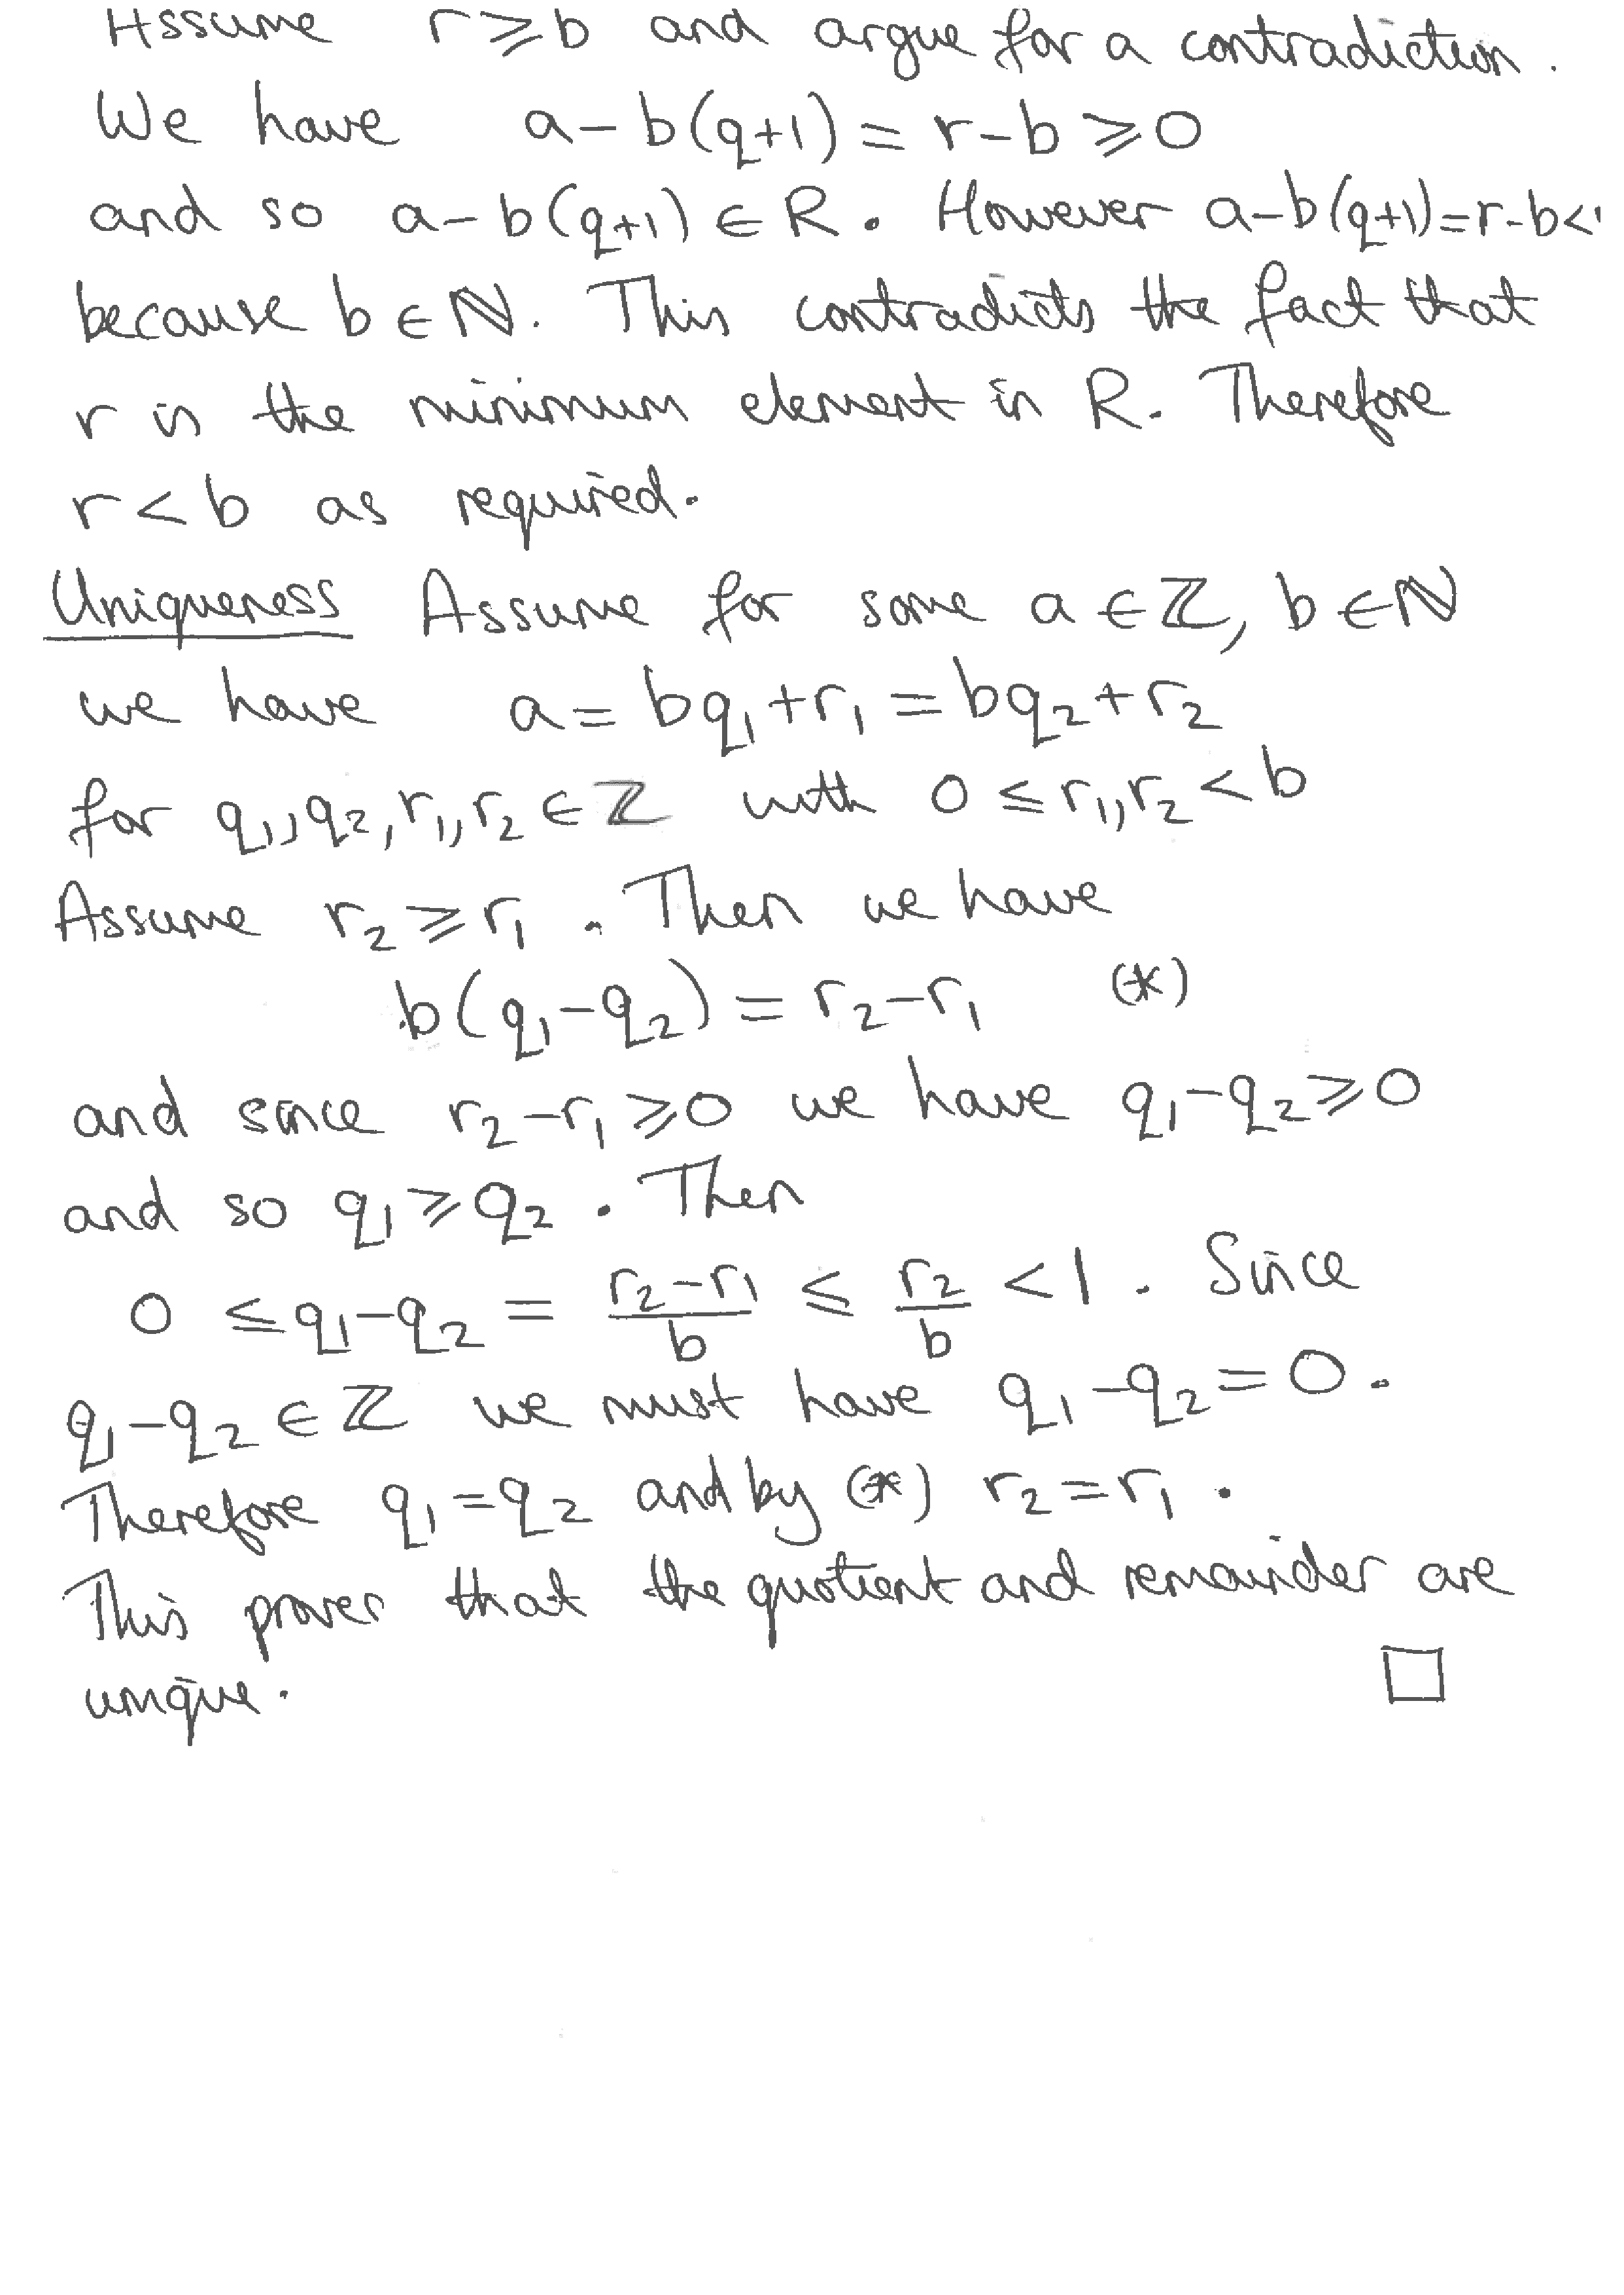 Assume r ⩾ b and argue for a contradiction.
We have a - b(q+1) = r - b ⩾ 0
and so a - b(q+1) ∈ R. However a - b(q+1) = r - b <
because b ∈ ℕ. This contradicts the fact that
r is the minimum element in R. Therefore
r < b as required.
Uniqueness Assume for some a ∈ ℤ, b ∈ ℕ
we have a = bq₁ + r₁ = bq₂ + r₂
for q₁, q₂, r₁, r₂ ∈ ℤ with 0 ≤ r₁, r₂ < b
Assume r₂ ⩾ r₁. Then we have
b(q₁ - q₂) = r₂ - r₁ (*)
and since r₂ - r₁ ⩾ 0 we have q₁ - q₂ ⩾ 0
and so q₁ ⩾ q₂. Then
0 ≤ q₁ - q₂ = (r₂ - r₁)/b ≤ r₂/b < 1. Since
q₁ - q₂ ∈ ℤ we must have q₁ - q₂ = 0.
Therefore q₁ = q₂ and by (*) r₂ = r₁.
This proves that the quotient and remainder are
unique. □